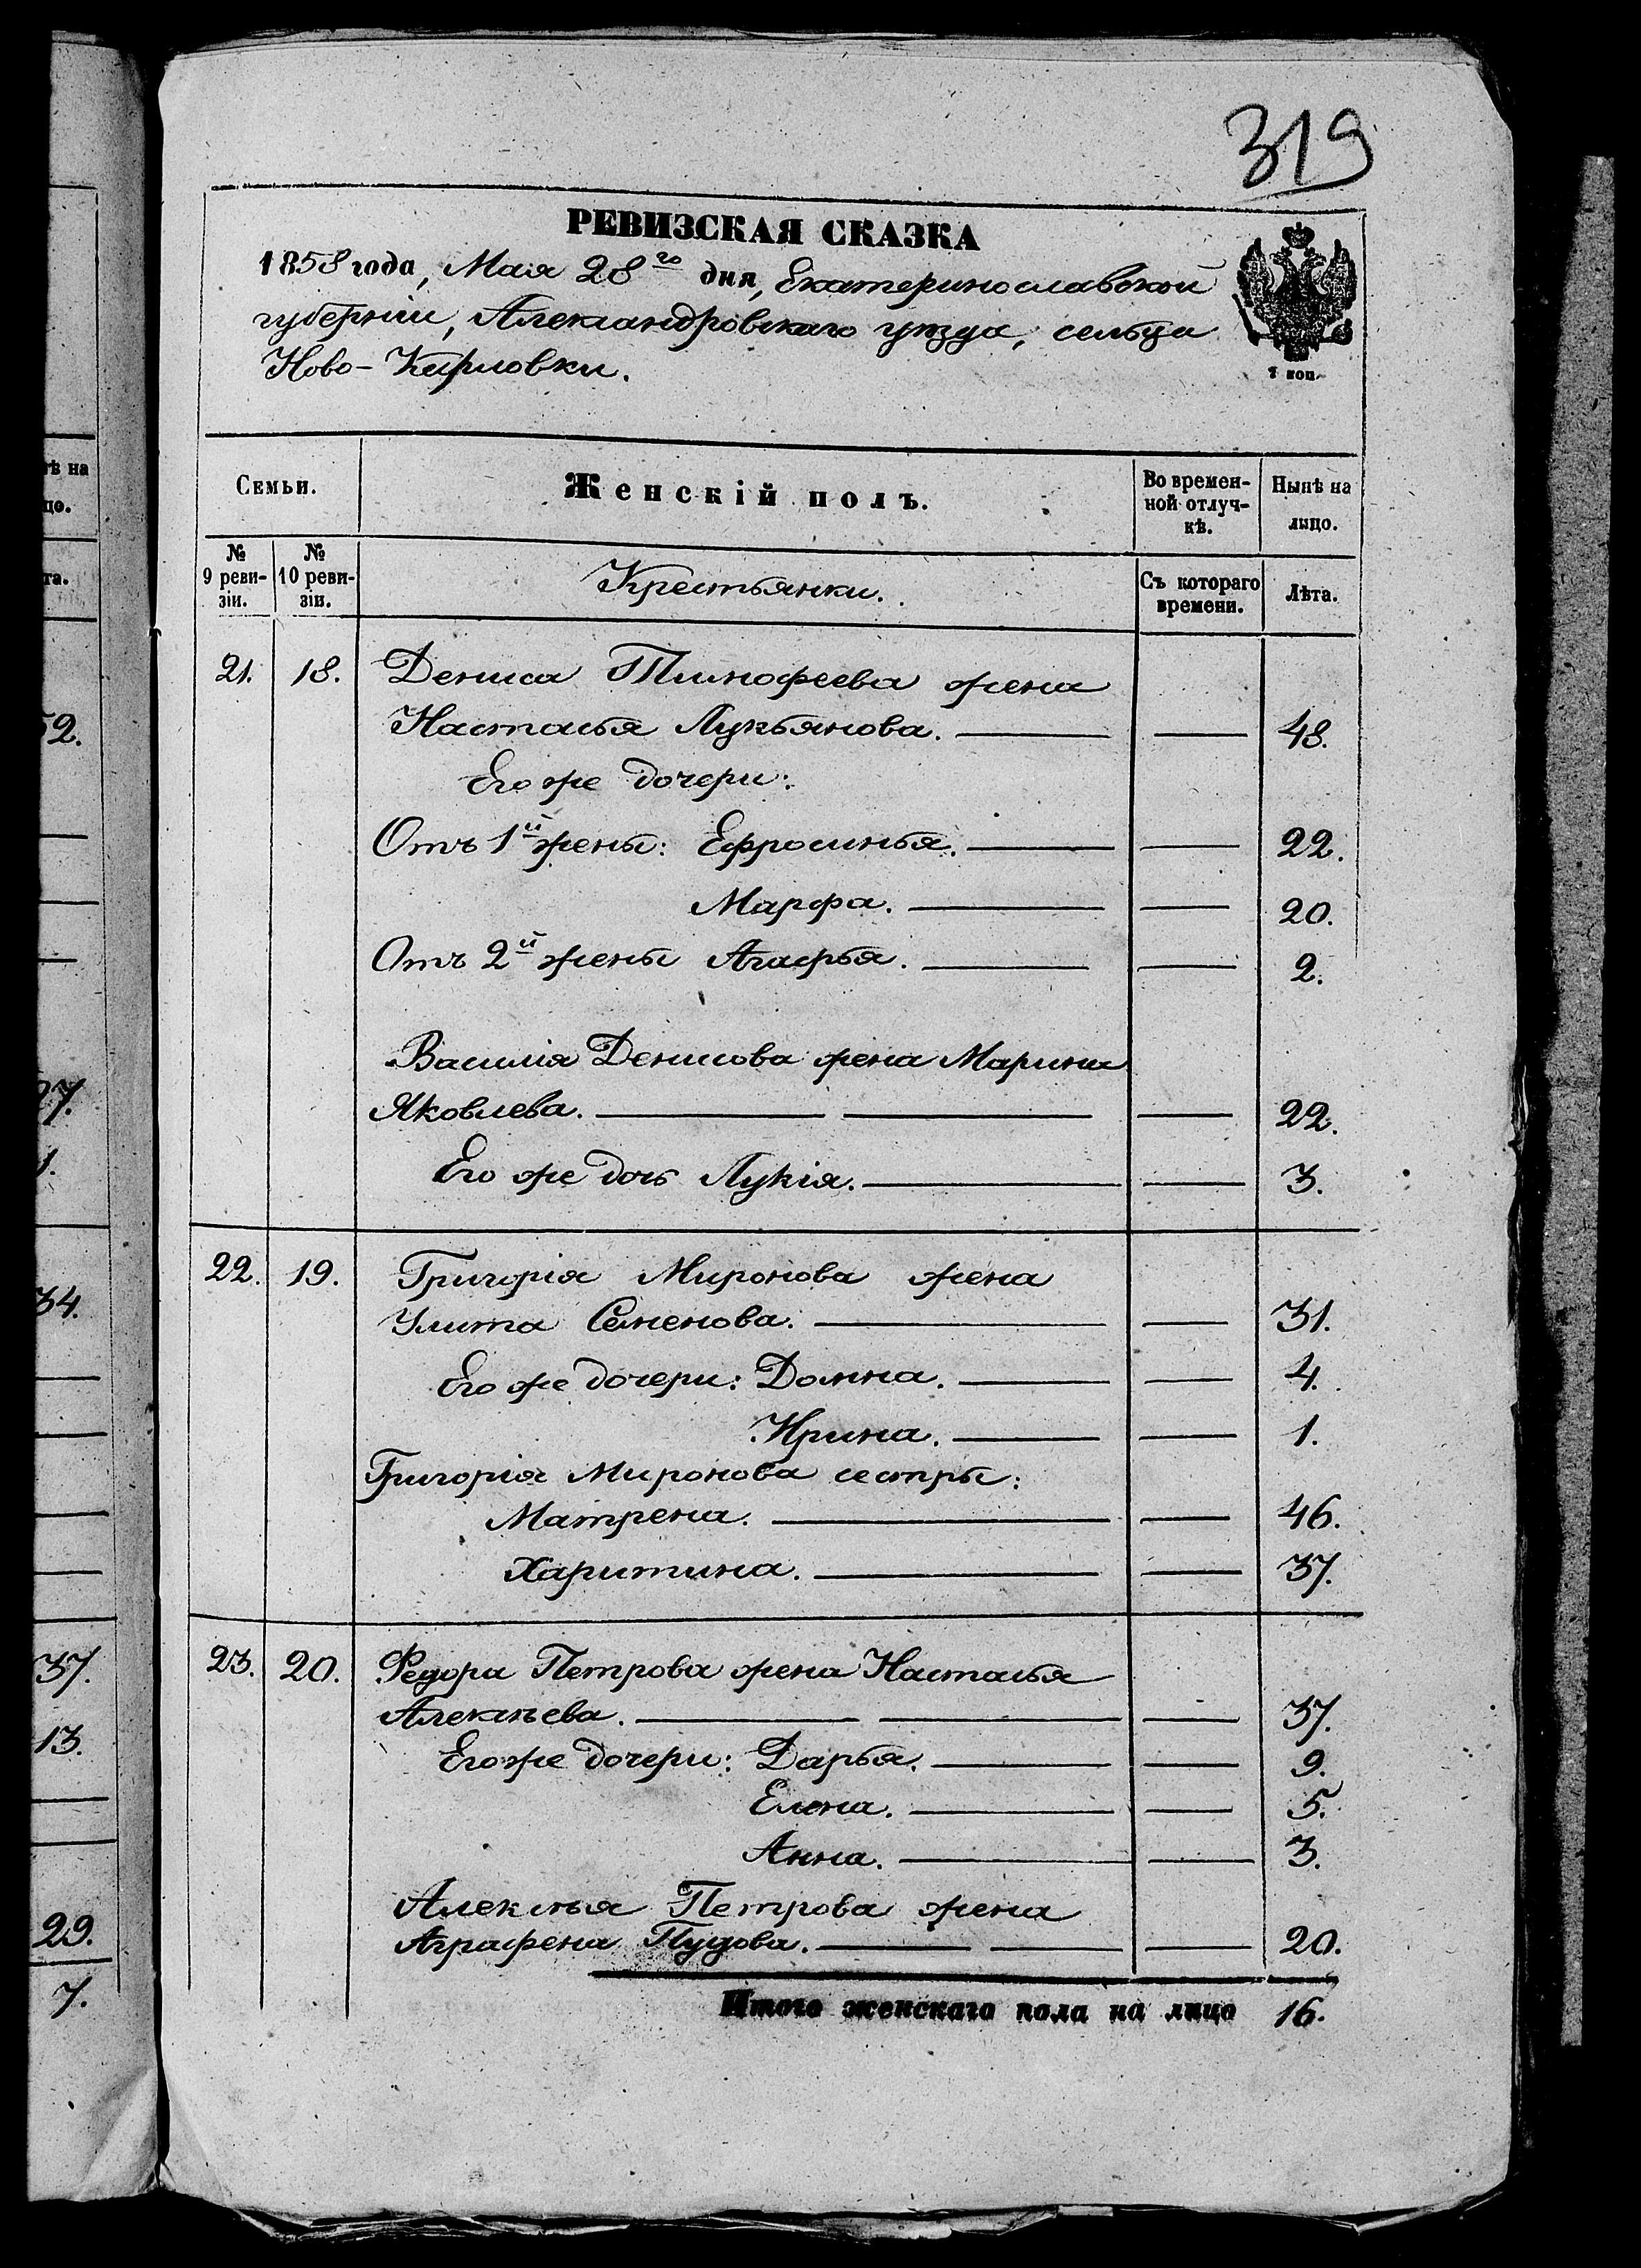 319
РЕВИЗСКАЯ СКАЗКА
1858 года, Мая 28го дня, Екатеринославской
губерніи, Александровскаго уѣзда, сельца
Ново-Карловки.
1 коп.
Семьи.
Женскій полъ.
Во времен-
ной отлуч-
кѣ.
Нынѣ на
лицо.
№
9 реви-
зіи.
№
10 реви-
зіи.
Крестьянки.
Съ котораго
времени.
Лѣта.
21. 18. Дениса Тимофеева жена
Настасья Лукьянова. 48.
Его же дочери:
Отъ 1й жены: Ефросинья. 22.
Марфа. 20.
Отъ 2й жены Агафья. 2.
Василія Денисова жена Марина
Яковлева. 22.
Его же дочь Лукія. 3.
22. 19. Григорія Миронова жена
Улита Семенова. 31.
Его же дочери: Домна. 4.
Ирина. 1.
Григорія Миронова сестры:
Матрена. 46.
Харитина. 37.
23. 20. Федора Петрова жена Настасья
Алексѣева. 37.
Его же дочери: Дарья. 9.
Елена. 5.
Анна. 3.
Алексѣя Петрова жена
Аграфена Пудова. 20.
Итого женскаго пола на лицо 16.
ѣ на
цо.
та.
52.
27.
1.
34.
37.
13.
29.
7.